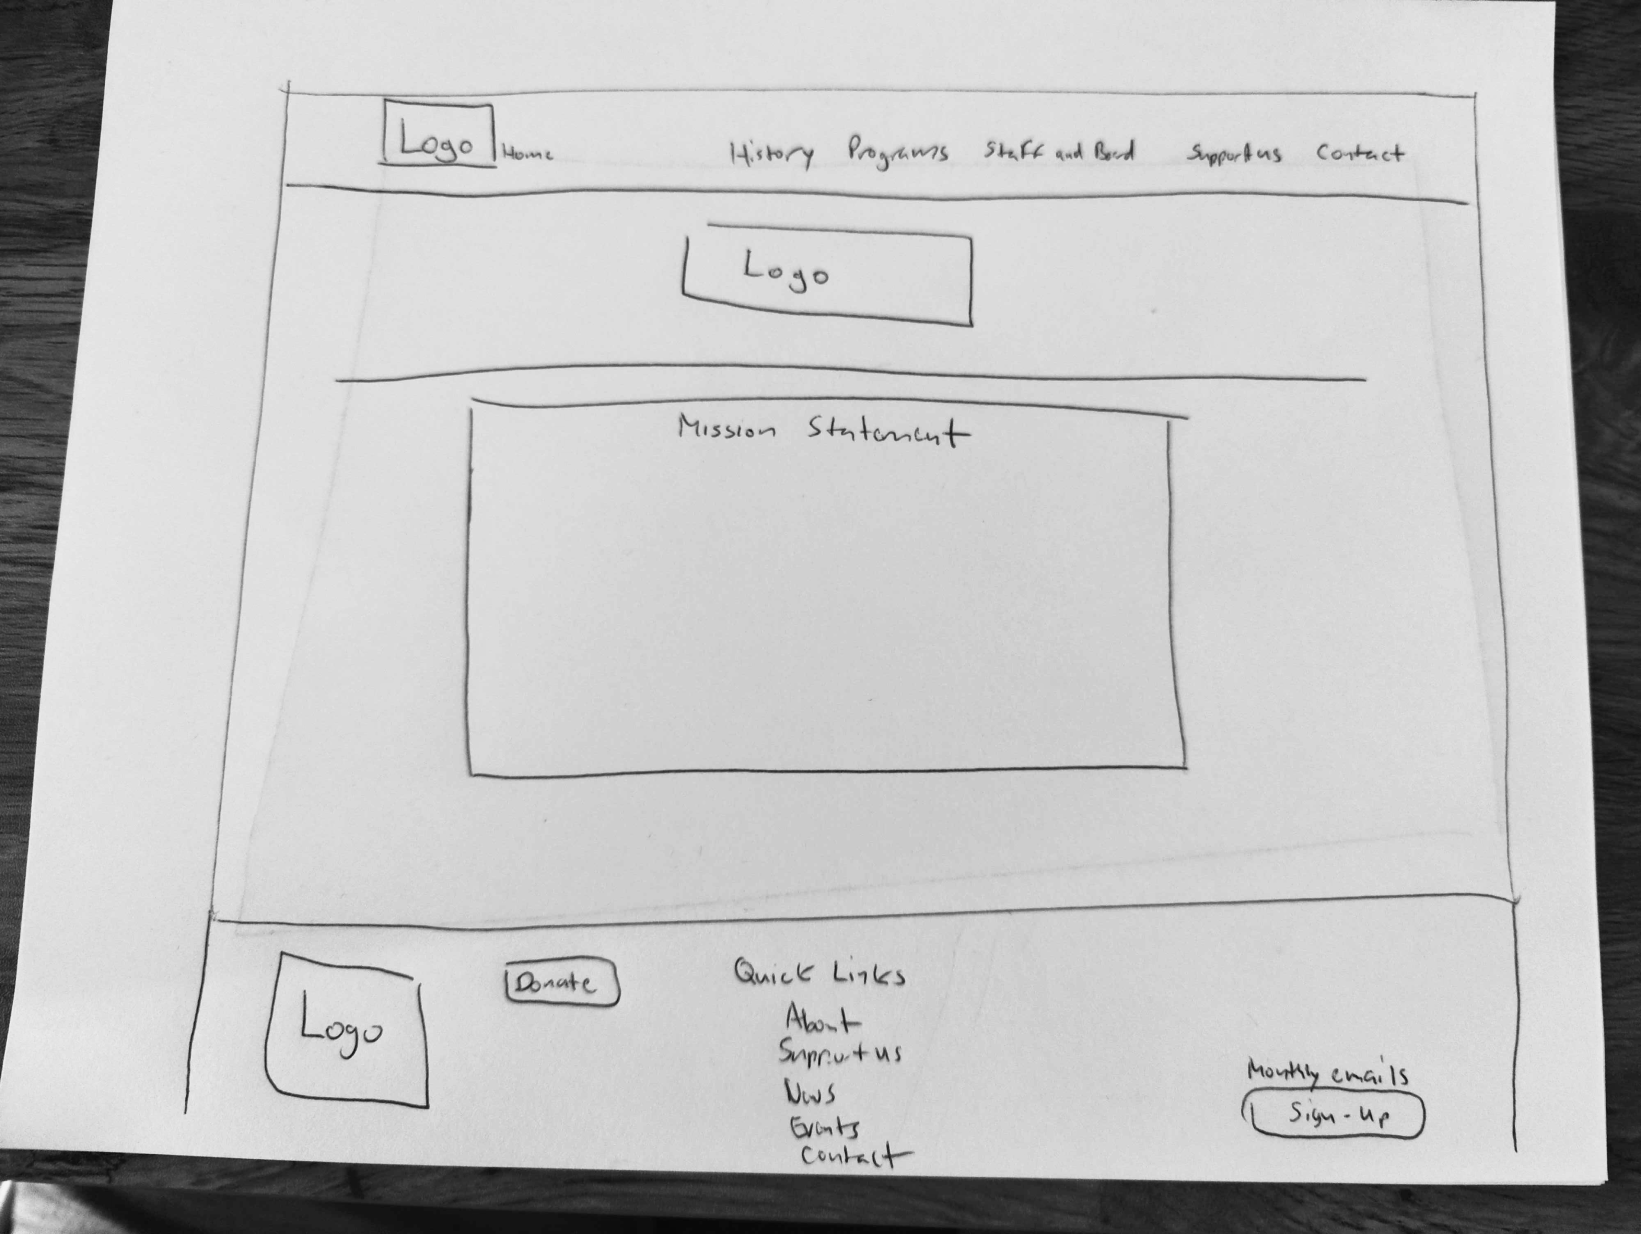 Logo Home History Programs Staff and Board Support us Contact
Logo
Mission Statement
Logo
Donate
Quick Links
About
Support us
News
Events
Contact
Monthly emails
Sign-up